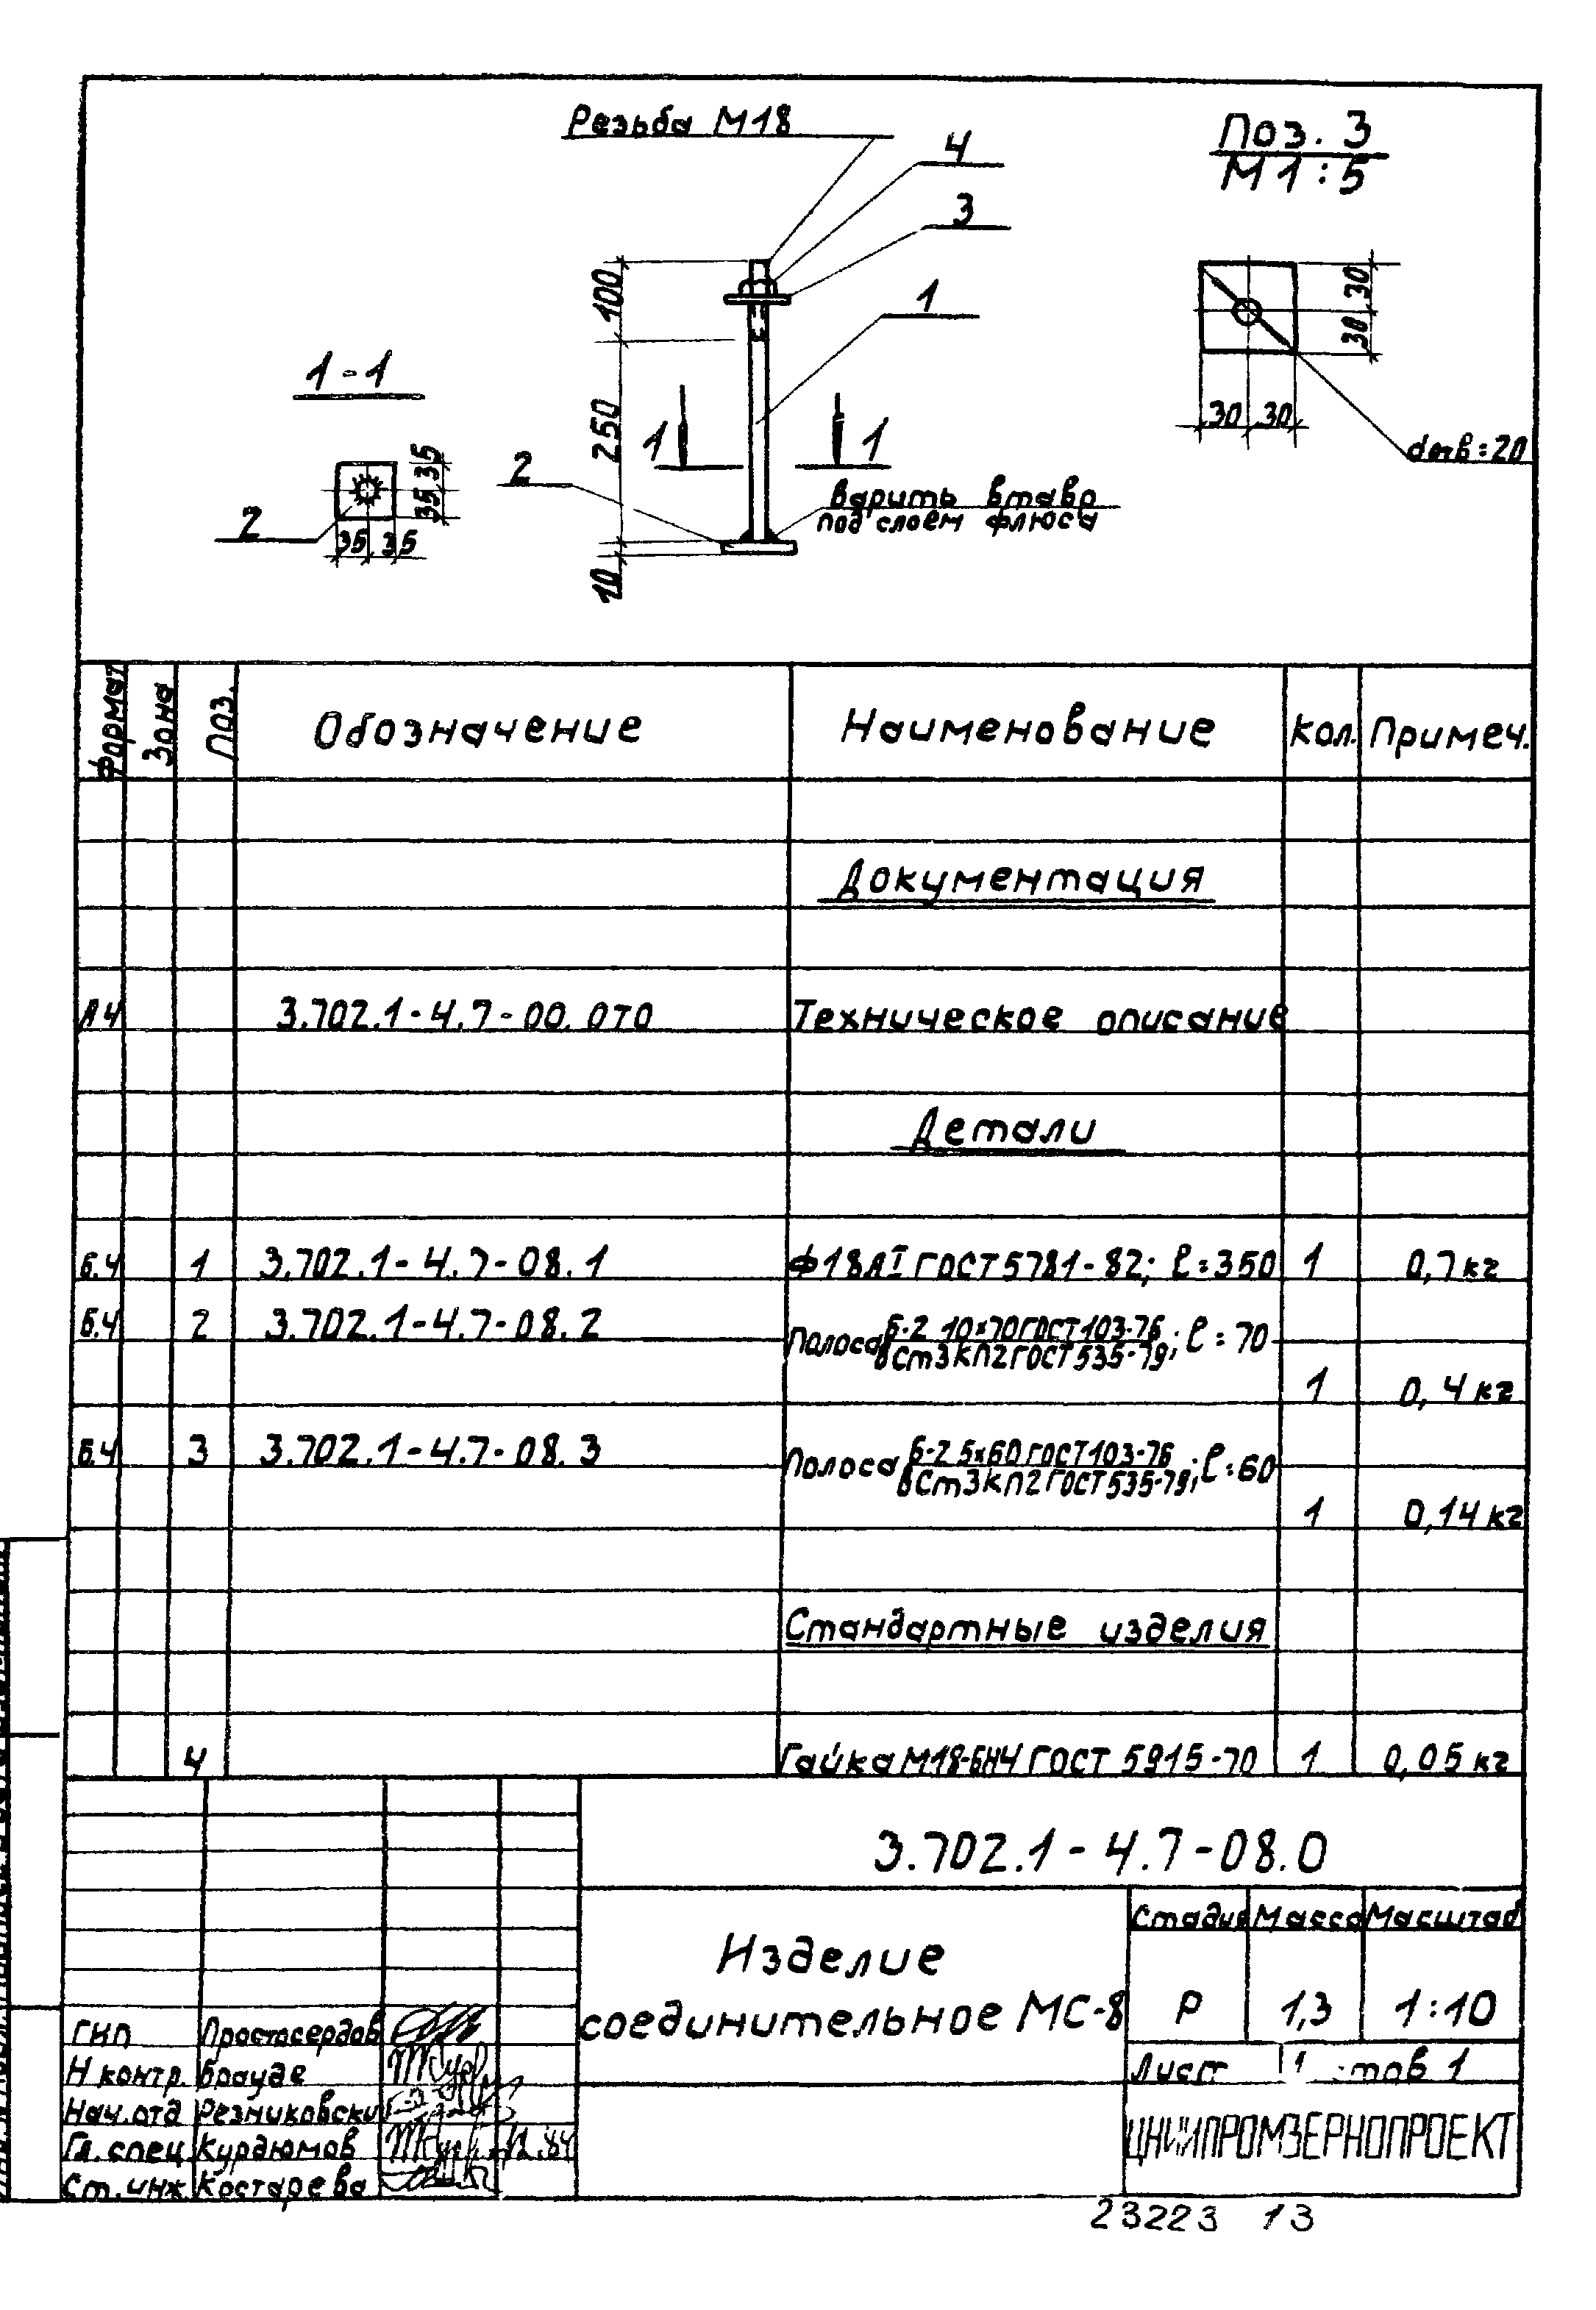 Резьба М18
4
3
1
Поз. 3
М 1 : 5
100
250
10
1-1
1
1
2
35 35
35 35
2
варить втавр
под слоем флюса
30 30
30 30
dотв=20
Формат Зона Поз. Обозначение Наименование Кол. Примеч.
Документация
А4 3.702.1-4.7-00.0ТО Техническое описание
Детали
Б.4 1 3.702.1-4.7-08.1 Ф18АI ГОСТ5781-82; ℓ=350 1 0,7 кг
Б.4 2 3.702.1-4.7-08.2 Полоса Б-2 10×70 ГОСТ 103-76
ВСт3кп2 ГОСТ 535-79; ℓ=70
1 0,4 кг
Б.4 3 3.702.1-4.7-08.3 Полоса Б-2 5×60 ГОСТ 103-76
ВСт3кп2 ГОСТ 535-79; ℓ=60
1 0,14 кг
Стандартные изделия
4 Гайка М18-6Н4 ГОСТ 5915-70 1 0,05 кг
3.702.1-4.7-08.0
Изделие
соединительное МС-8
Стадия Масса Масштаб
Р 1,3 1:10
Лист 1 -тов 1
ЦНИИПРОМЗЕРНОПРОЕКТ
ГИП Простосердов
Н контр. Брауде
Нач.отд Резниковски
Гл. спец Курдюмов 12.84
Ст.инж Костарева
23223 13